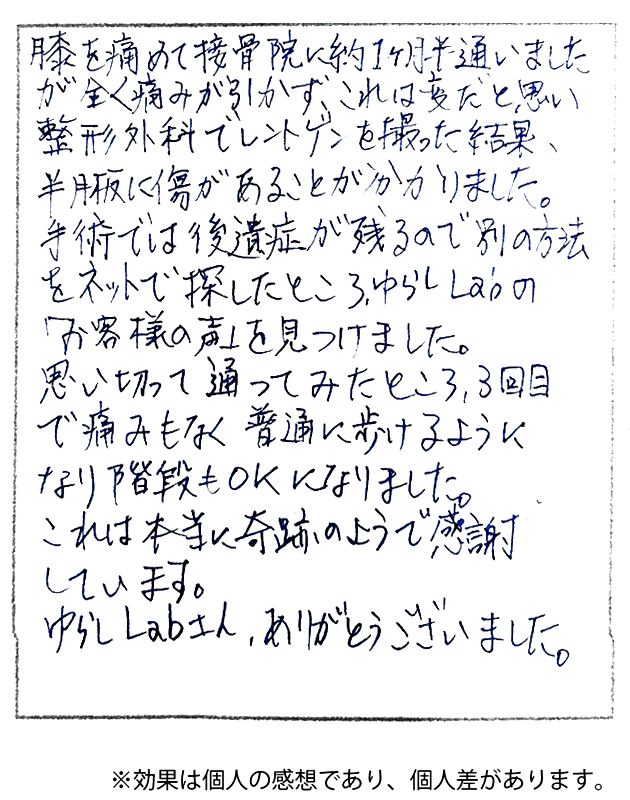 膝を痛めて接骨院に約1ヶ月半通いました
が全く痛みが引かず、これは変だと思い
整形外科でレントゲンを撮った結果、
半月板に傷があることが分かりました。
手術では後遺症が残るので別の方法
をネットで探したところ、ゆらしLabの
「お客様の声」を見つけました。
思い切って通ってみたところ、3回目
で痛みもなく普通に歩けるように
なり階段もOKになりました。
これは本当に奇跡のようで感謝
しています。
ゆらしLabさん、ありがとうございました。
※効果は個人の感想であり、個人差があります。